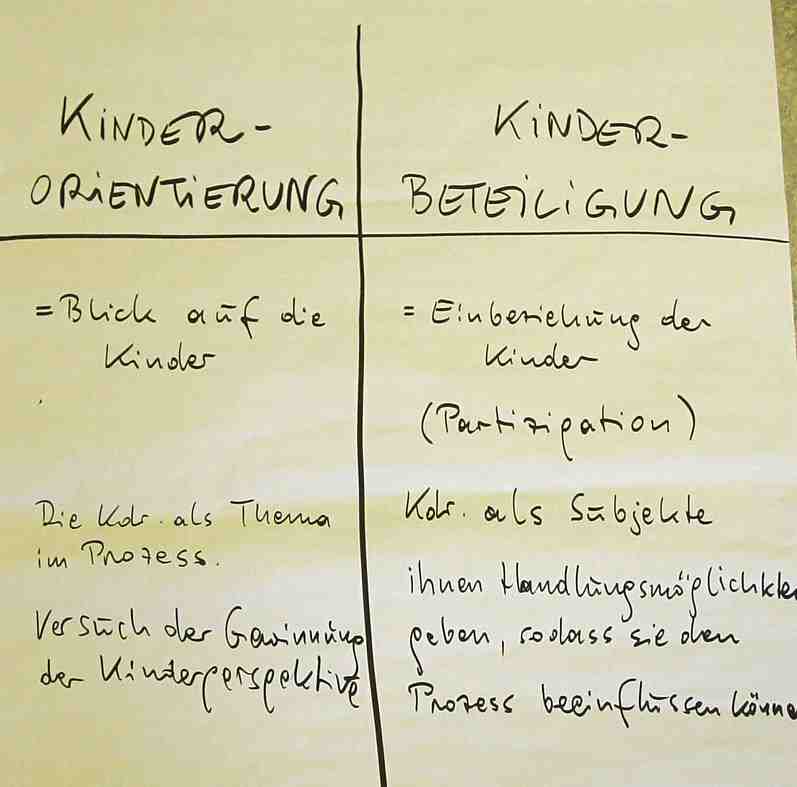 KINDER-
ORIENTIERUNG
= Blick auf die
Kinder
Die Kdr. als Thema
im Prozess.
Versuch der Gewinnung
der Kinderperspektive
KINDER-
BETEILIGUNG
= Einbeziehung der
Kinder
(Partizipation)
Kdr. als Subjekte
ihnen Handlungsmöglichkte
geben, sodass sie den
Prozess beeinflussen könne